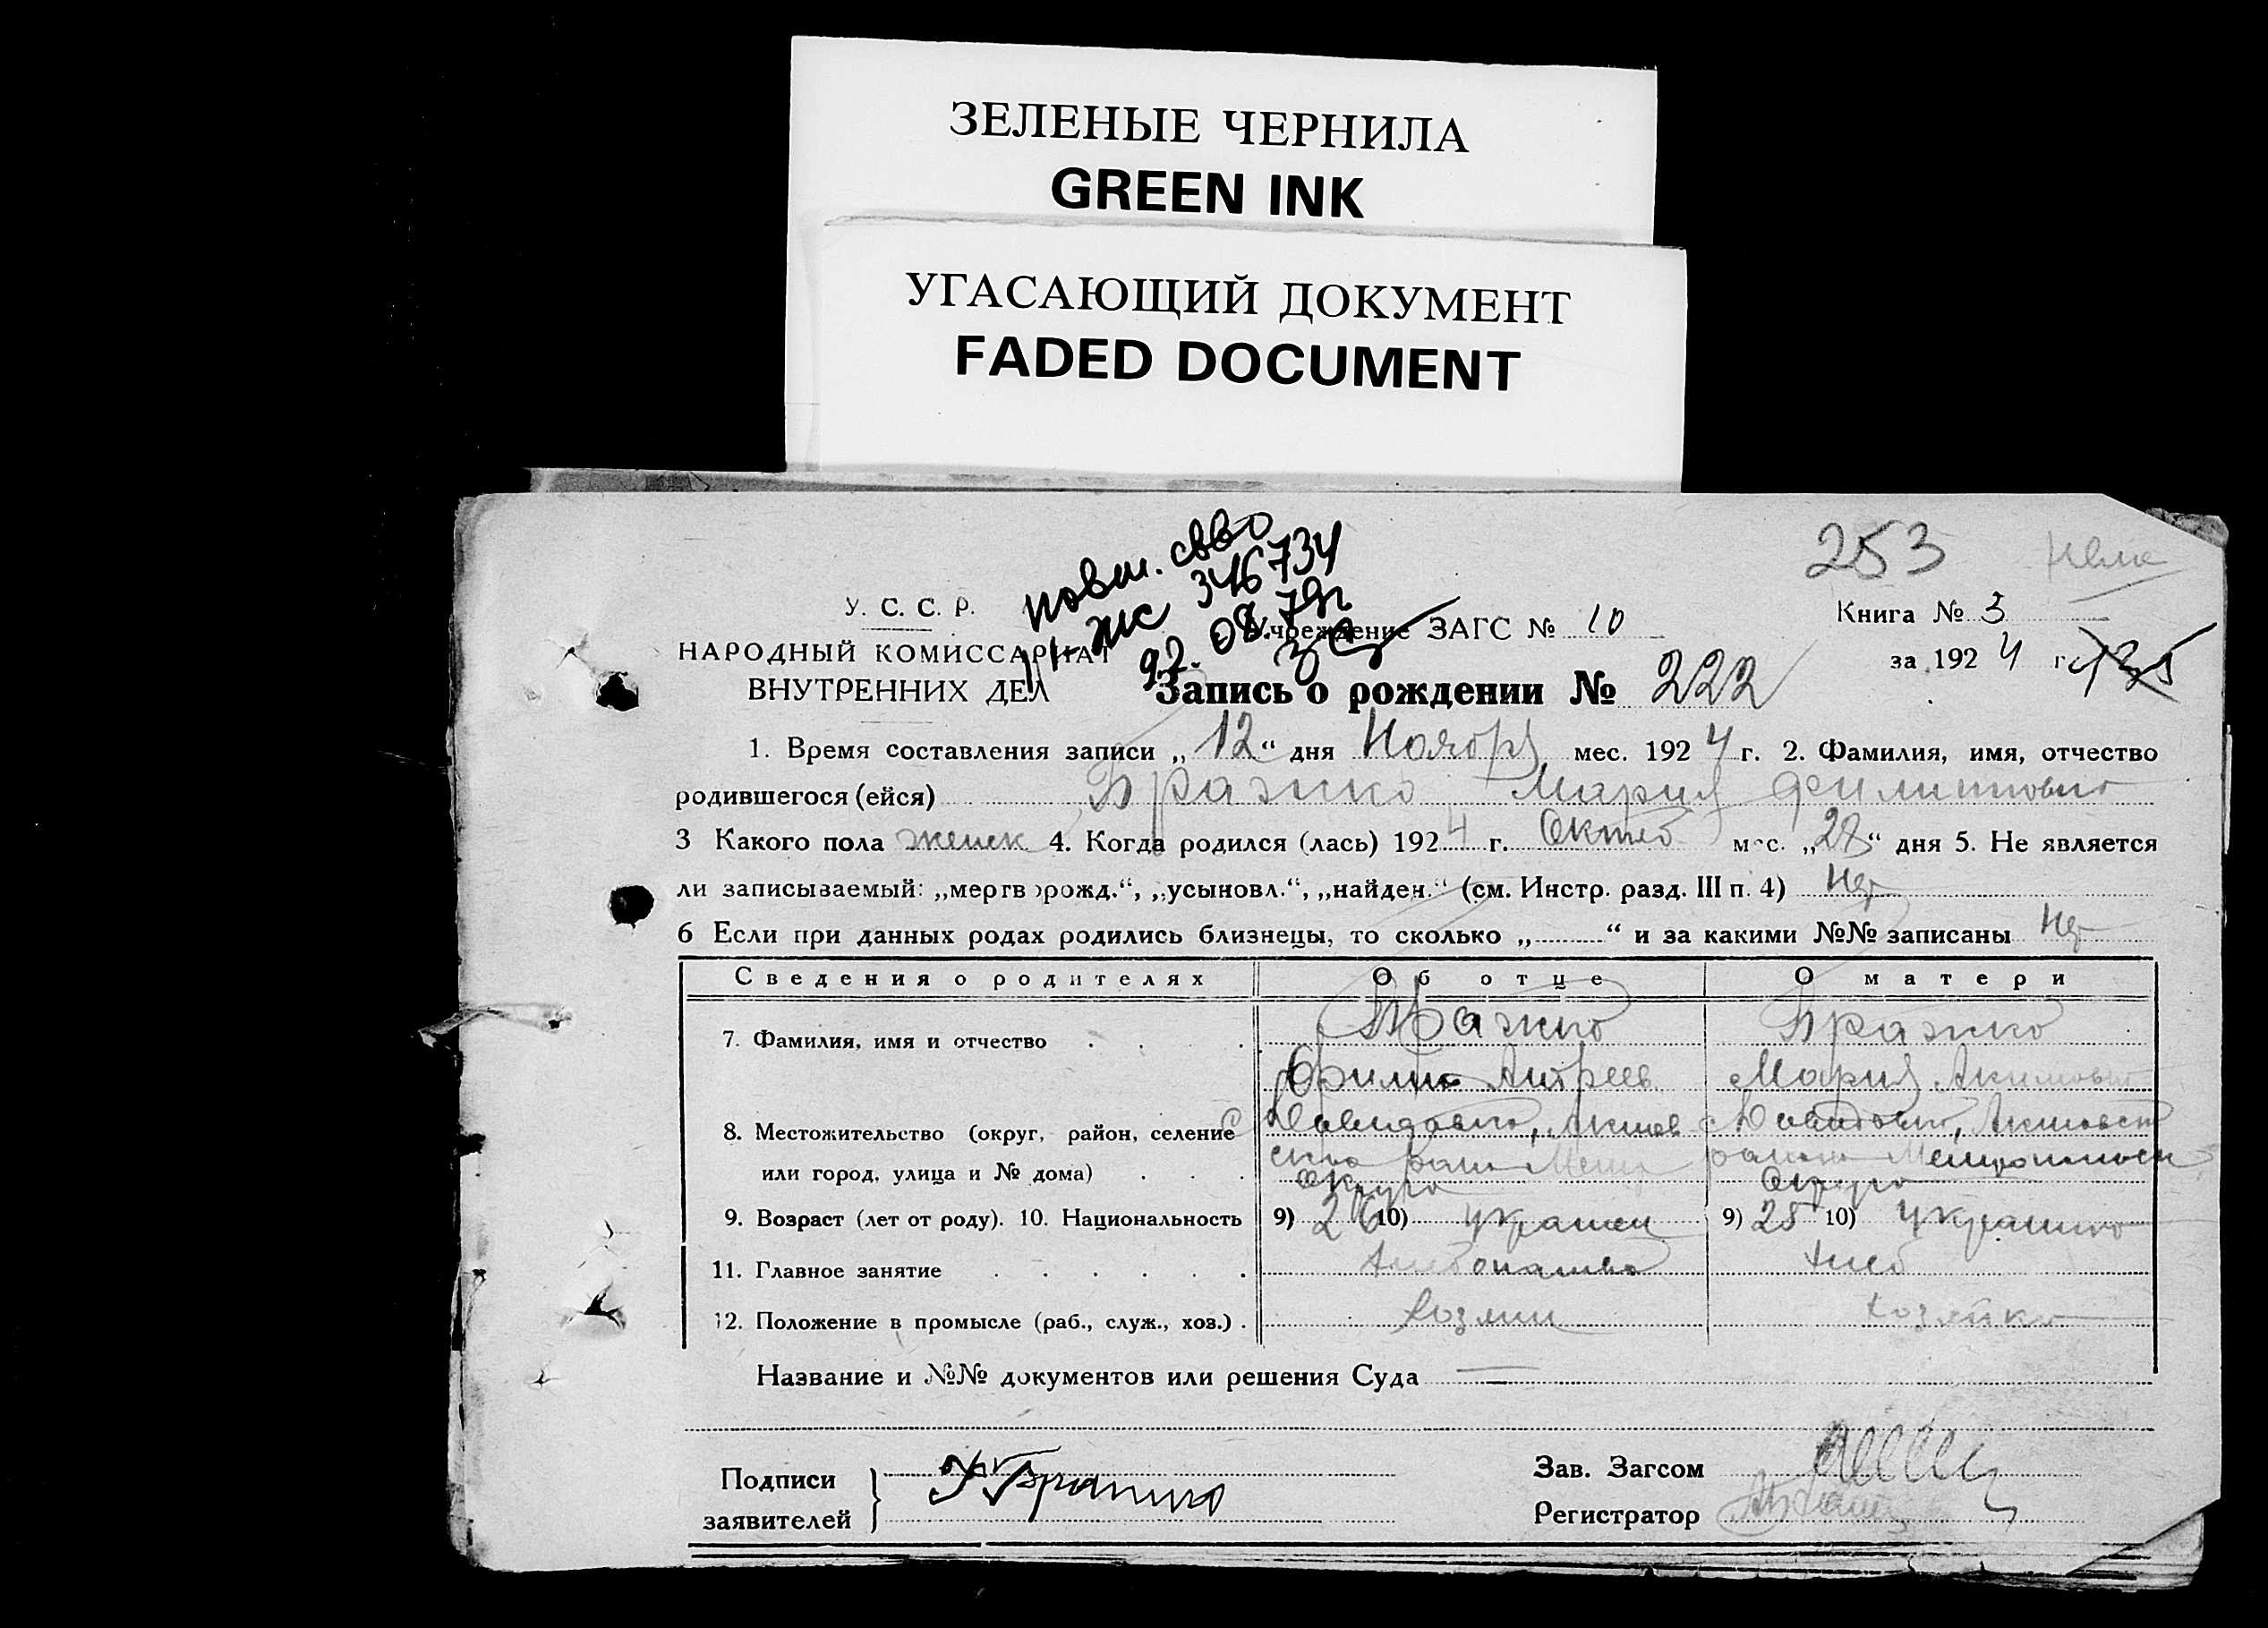 ЗЕЛЕНЫЕ ЧЕРНИЛА
GREEN INK
УГАСАЮЩИЙ ДОКУМЕНТ
FADED DOCUMENT
253
повт. св-во
346734
08.79г
У. С. С. Р.
НАРОДНЫЙ КОМИССАРИАТ
ВНУТРЕННИХ ДЕЛ
Учреждение ЗАГС № 10
Книга № 3
за 1924 г.
Запись о рождении № 222
1. Время составления записи „12“ дня Ноября мес. 1924 г. 2. Фамилия, имя, отчество
родившегося (ейся) Бражко Мария Филиповна
3 Какого пола женск 4. Когда родился (лась) 1924 г. Октяб мес. „28“ дня 5. Не является
ли записываемый: „мертворожд.“, „усыновл.“, „найден.“ (см. Инстр. разд. III п. 4) Нет
6 Если при данных родах родились близнецы, то сколько „ “ и за какими №№ записаны Нет
Сведения о родителях Об отце О матери
7. Фамилия, имя и отчество Бражко Бражко
Филип Андреев Мария Акимовн
8. Местожительство (округ, район, селение Давидовка, Акимов Давидовка, Акимовск
или город, улица и № дома) ского район района Мелитопольск
Округа Округа
9. Возраст (лет от роду). 10. Национальность 9) 26 10) украинец 9) 25 10) украинка
11. Главное занятие Хлебопашество хлеб
12. Положение в промысле (раб., служ., хоз.) Хозяин Хозяйка
Название и №№ документов или решения Суда —
Подписи
заявителей
Бражко
Зав. Загсом
Регистратор